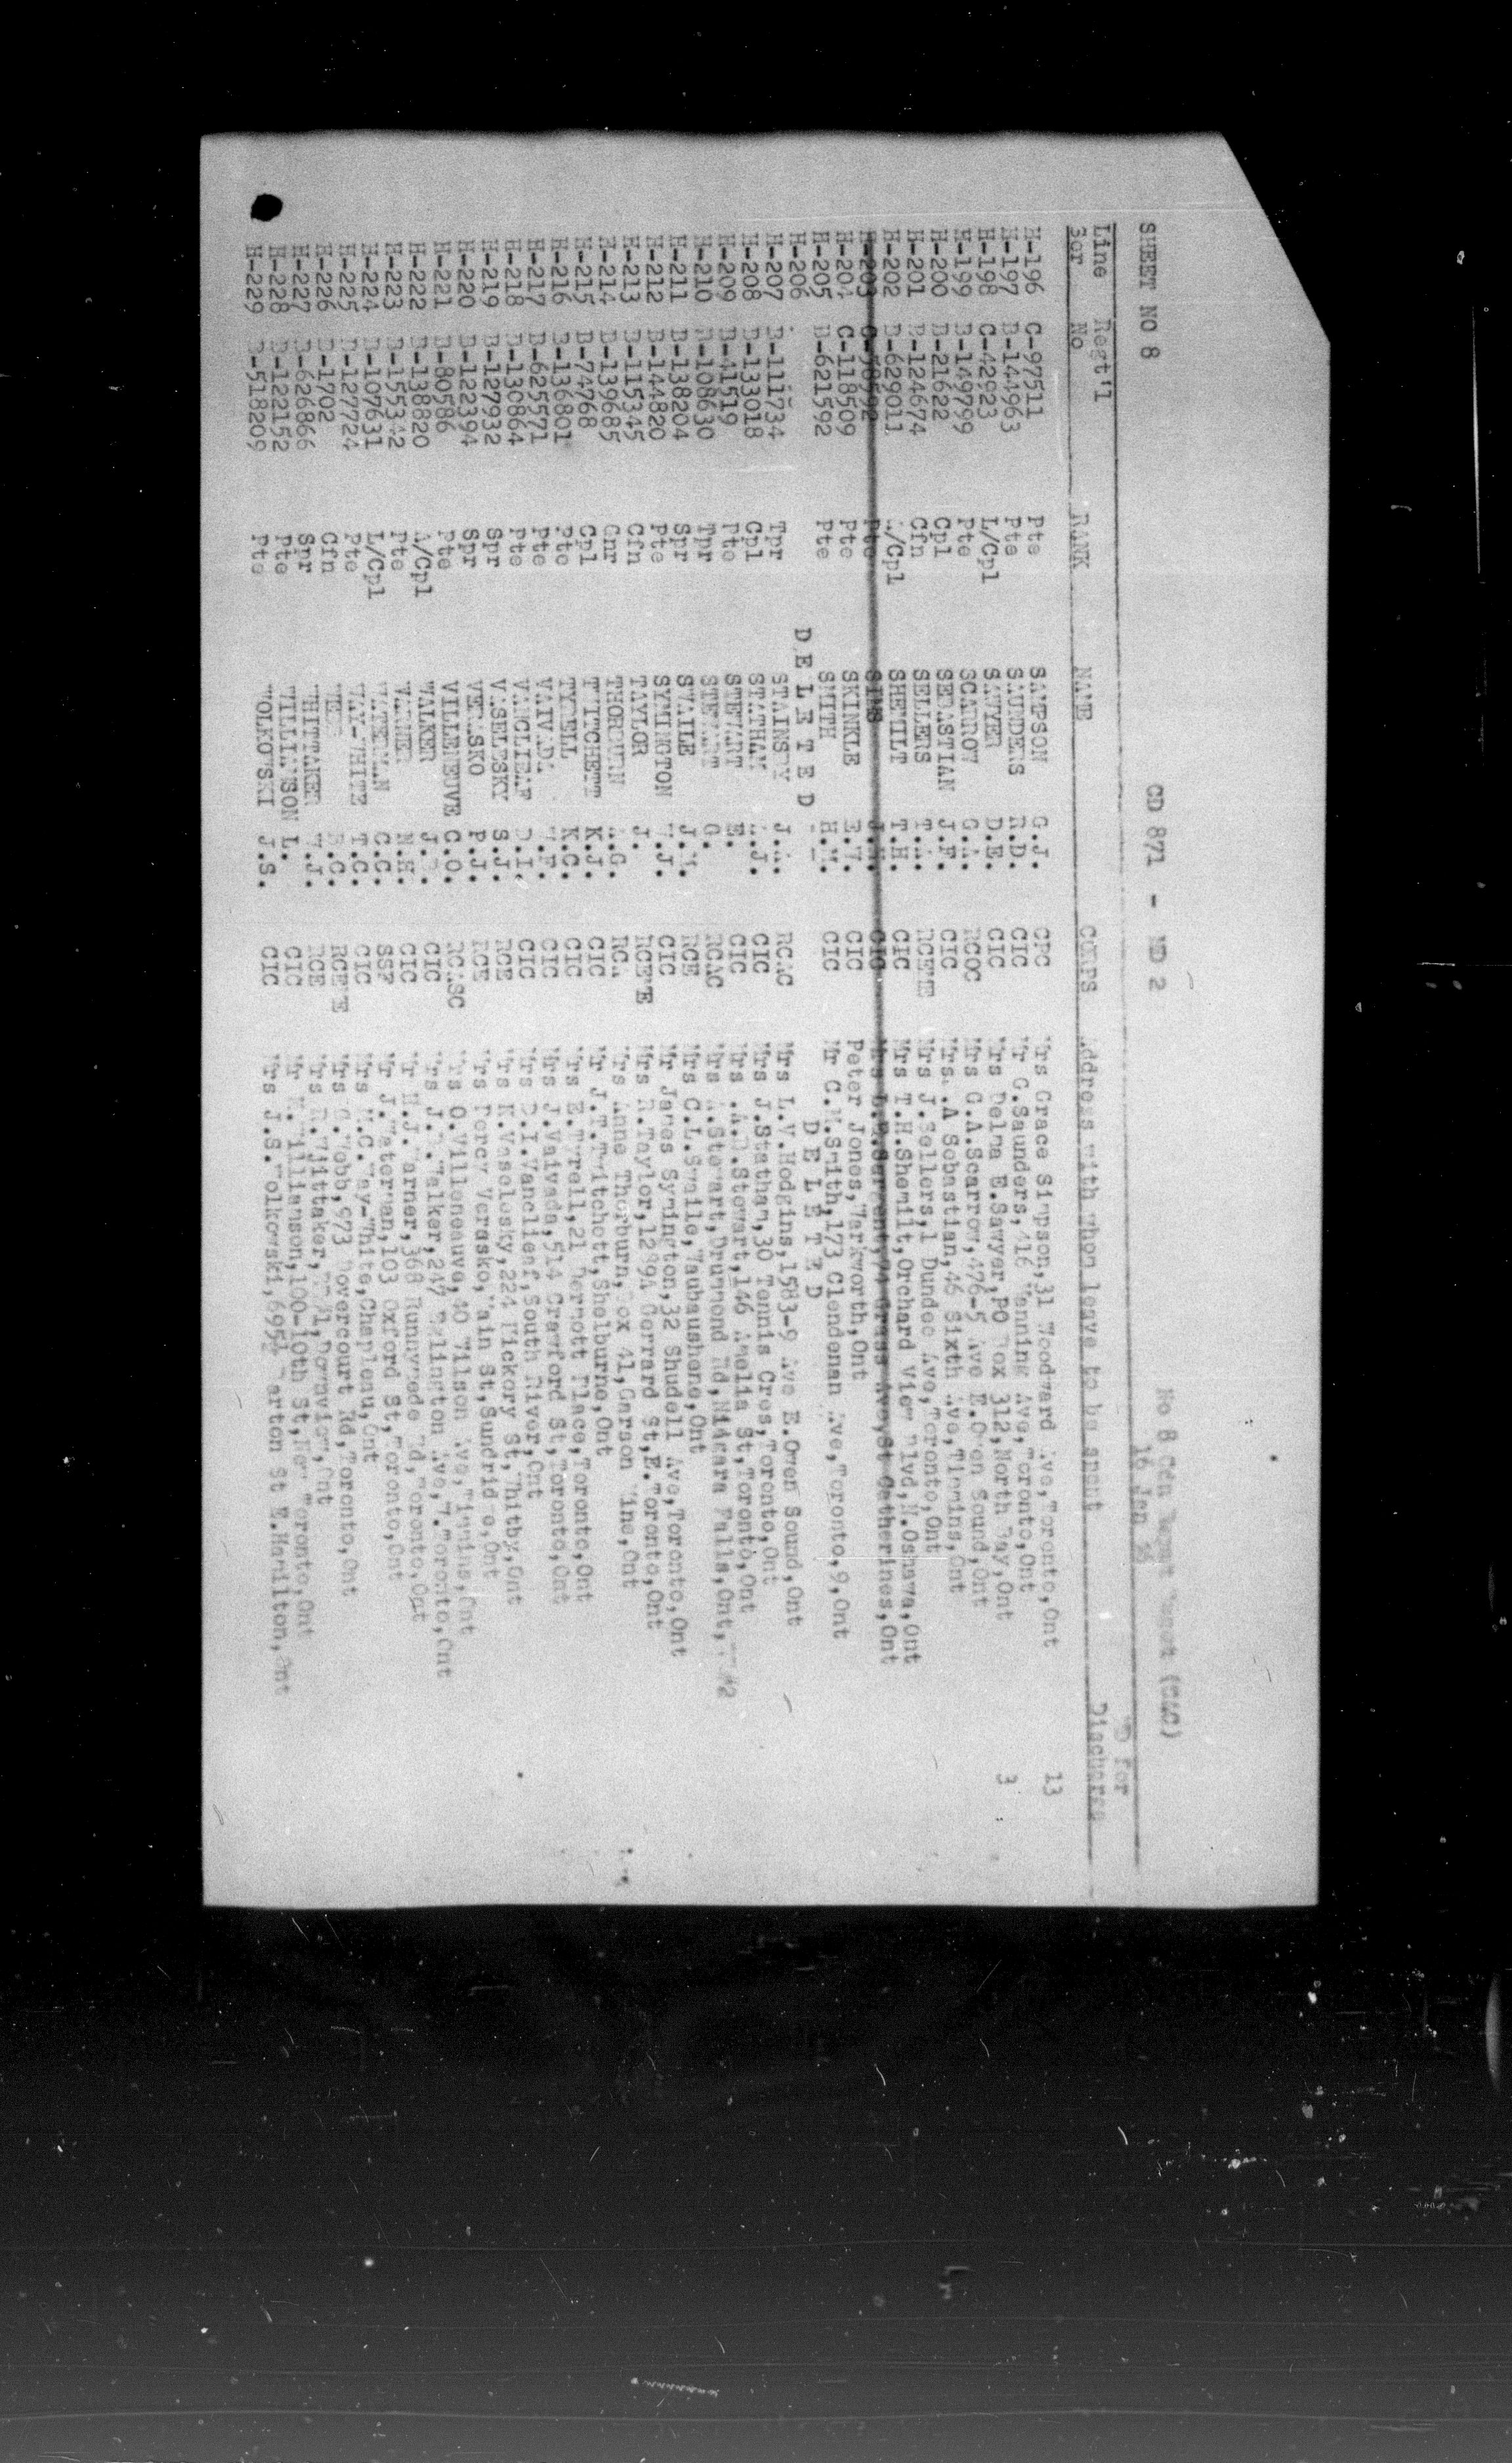 SHEET NO 8 CD 871 - MD 2 No 8 Cdn (CAC)
16 Jan
Line Regt'l RANK NAME CORPS Address with whom leave to be spent for
Ser No Discharge
H-196 C-97511 Pte SAMPSON G.J. CPC Mrs Grace Simpson,31 Woodward Ave,Toronto,Ont 13
H-197 B-144963 Pte SAUNDERS R.D. CIC Mr G.Saunders,416 Manning Ave,Toronto,Ont
H-198 C-42923 L/Cpl SAWYER D.E. CIC Mrs Delma E.Sawyer,PO Box 312,North Bay,Ont 3
H-199 B-149799 Pte SCARROW G.A. RCOC Mrs G.A.Scarrow,476-5 Ave E.Owen Sound,Ont
H-200 B-21622 Cpl SEBASTIAN J.F. CIC Mrs.A Sebastian,46 Sixth Ave,Timmins,Ont
H-201 B-124674 Cfn SELLERS T.A. RCEME Mrs J.Sellers,1 Dundee Ave,Toronto,Ont
H-202 B-629011 A/Cpl SHEMILT T.H. CIC Mrs T.H.Shemilt,Orchard View Blvd,N.Oshawa,Ont
H-203 C-58592 Pte SIMS CIC Mrs Sargent,74 Grass Ave,St Catherines,Ont
H-204 C-118509 Pte SKINKLE E.W. CIC Peter Jones,Warkworth,Ont
H-205 B-621592 Pte SMITH H.M. CIC Mr C.H.Smith,173 Clendenan Ave,Toronto,9,Ont
H-206 D E L E T E D D E L E T E D
H-207 B-111734 Tpr STAINSBY J.A. RCAC Mrs L.V.Hodgins,1583-9 Ave E.Owen Sound,Ont
H-208 B-133018 Cpl STATHAM A.J. CIC Mrs J.Statham,30 Tennis Cres,Toronto,Ont
H-209 B-41519 Pte STEWART E. CIC Mrs .A.D.Stewart,146 Amelia St,Toronto,Ont
H-210 B-108630 Tpr STEWART G. RCAC Mrs A.Stewart,Drummond Rd,Niagara Falls,Ont,
H-211 B-138204 Spr SWAILE J.M. RCE Mrs C.L.Swaile,Waubaushene,Ont
H-212 B-144820 Pte SYMINGTON W.J. CIC Mr James Symington,32 Shudell Ave,Toronto,Ont
H-213 B-115345 Cfn TAYLOR J. RCEME Mrs R.Taylor,1299A Gerrard St,E.Toronto,Ont
H-214 B-139685 Gnr THORBURN A.G. RCA Mrs Anne Thorburn,Box 41,Garson Mine,Ont
H-215 B-74768 Cpl TWITCHETT K.J. CIC Mr J.T.Twitchett,Shelburne,Ont
H-216 B-136801 Pte TYRELL K.C. CIC Mrs E.Tyrell,21 Dermott Place,Toronto,Ont
H-217 B-625571 Pte VAIVADA W.F. CIC Mrs J.Vaivada,514 Crawford St,Toronto,Ont
H-218 B-130864 Pte VANCLIEAF D.I. CIC Mrs D.I.Vanclieaf,South River,Ont
H-219 B-127932 Spr VASELESKY S.J. RCE Mrs K.Vaselesky,224 Hickory St,Whitby,Ont
H-220 B-122394 Spr VERASKO P.J. RCE Mrs Percy Verasko,Main St,Sundridge,Ont
H-221 B-80586 Pte VILLENEUVE C.O. RCASC Mrs O.Villeneauve,40 Wilson Ave,Timmins,Ont
H-222 B-138820 A/Cpl WALKER J. CIC Mrs J. Walker,247 Ave,W.Toronto,Ont
H-223 B-155342 Pte WARNER N.H. CIC Mr H.J.Warner,368 Runnymede Rd,Toronto,Ont
H-224 B-107631 L/Cpl WATERMAN C.C. SSF Mr J.Waterman,103 Oxford St,Toronto,Ont
H-225 B-127724 Pte WAY-WHITE T.C. CIC Mrs M.C.Way-White,Chapleau,Ont
H-226 B-1702 Cfn WEBB B.C. RCEME Mrs C.Webb,973 Dovercourt Rd,Toronto,Ont
H-227 B-626866 Spr WHITTAKER W.J. RCE Mrs Whittaker, Downview,Ont
H-228 B-122152 Pte WILLIAMSON L. CIC Mr Williamson,100-10th St,New Toronto,Ont
H-229 B-518209 Pte WOLKOWSKI J.S. CIC Mrs J.S.Wolkowski,695½ Barton St E.Hamilton,Ont